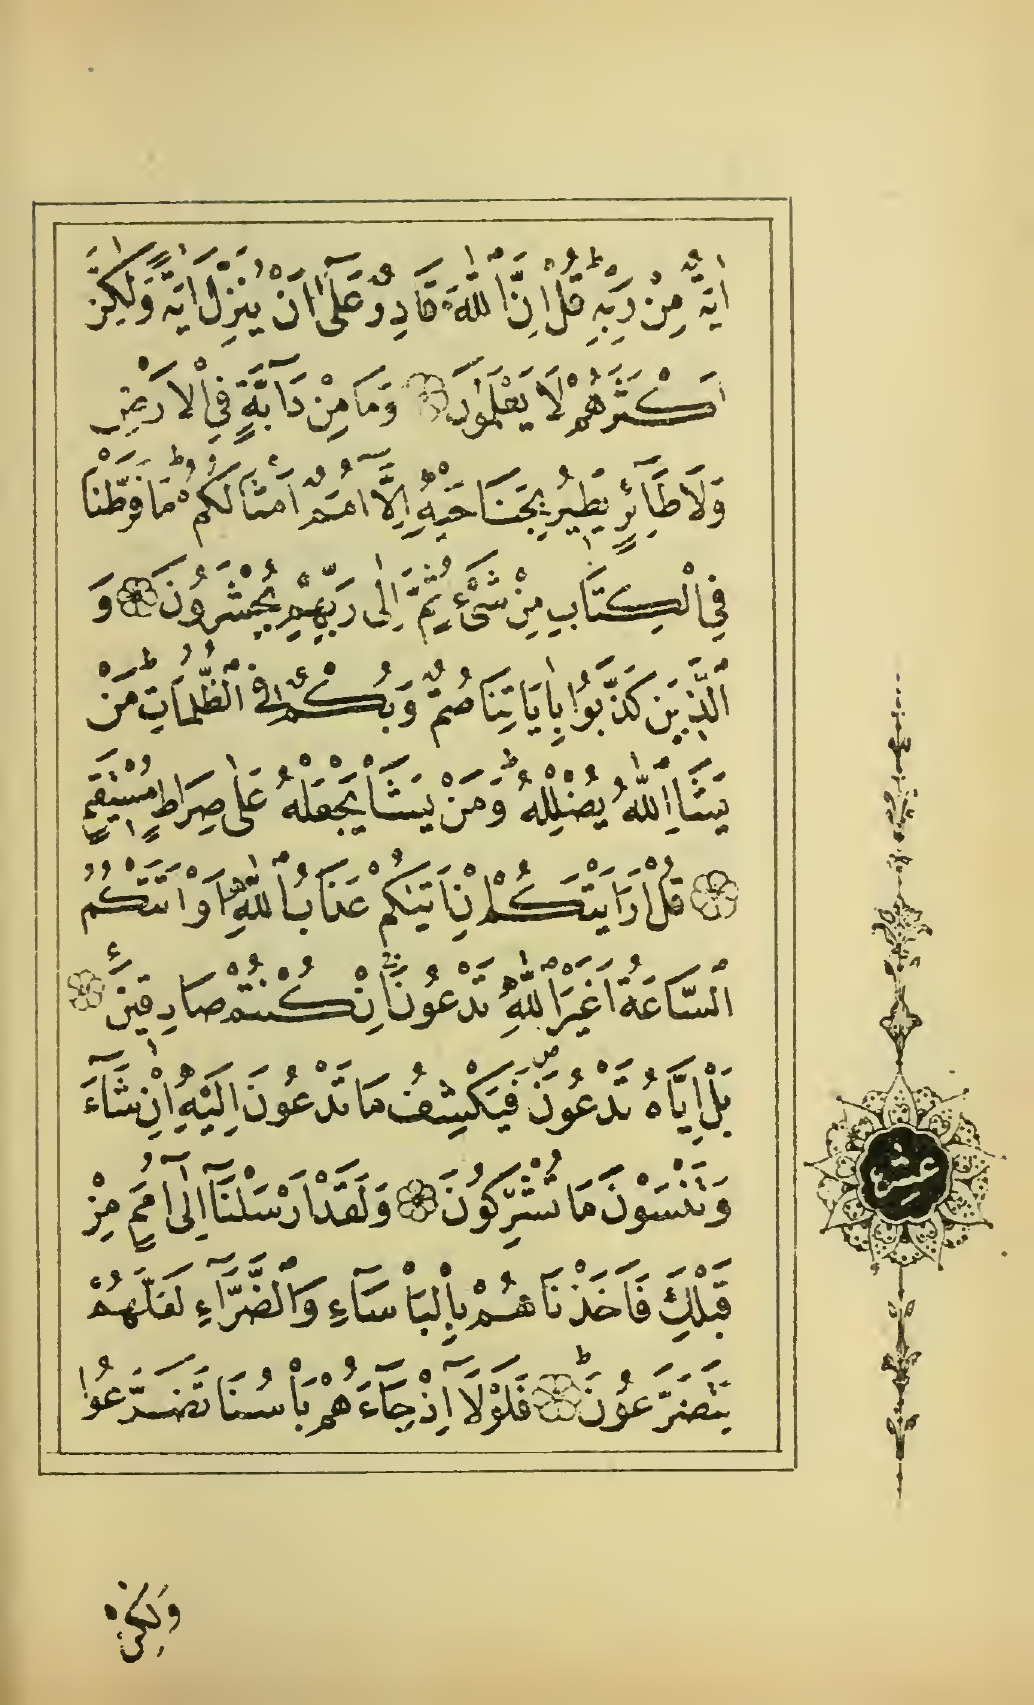 اٰيَةٌ مِنْ رَبِّهٖ قُلْ اِنَّ اللّٰهَ قَادِرٌ عَلٰٓى اَنْ يُنَزِّلَ اٰيَةً وَلٰكِنَّ
اَكْثَرَهُمْ لَا يَعْلَمُونَ وَمَا مِنْ دَٓابَّةٍ فِي الْاَرْضِ
وَلَا طَٓائِرٍ يَطِيرُ بِجَنَاحَيْهِ اِلَّٓا اُمَمٌ اَمْثَالُكُمْ مَا فَرَّطْنَا
فِي الْكِتَابِ مِنْ شَيْءٍ ثُمَّ اِلٰى رَبِّهِمْ يُحْشَرُونَ وَ
الَّذِينَ كَذَّبُوا بِاٰيَاتِنَا صُمٌّ وَبُكْمٌ فِي الظُّلُمَاتِ مَنْ
يَشَاِ اللّٰهُ يُضْلِلْهُ وَمَنْ يَشَأْ يَجْعَلْهُ عَلٰى صِرَاطٍ مُسْتَقِيمٍ
قُلْ اَرَاَيْتَكُمْ اِنْ اَتٰيكُمْ عَذَابُ اللّٰهِ اَوْ اَتَتْكُمُ
السَّاعَةُ اَغَيْرَ اللّٰهِ تَدْعُونَ اِنْ كُنْتُمْ صَادِقِينَ
بَلْ اِيَّاهُ تَدْعُونَ فَيَكْشِفُ مَا تَدْعُونَ اِلَيْهِ اِنْ شَٓاءَ
وَتَنْسَوْنَ مَا تُشْرِكُونَ وَلَقَدْ اَرْسَلْنَٓا اِلٰٓى اُمَمٍ مِنْ
قَبْلِكَ فَاَخَذْنَاهُمْ بِالْبَأْسَٓاءِ وَالضَّرَّٓاءِ لَعَلَّهُمْ
يَتَضَرَّعُونَ فَلَوْلَٓا اِذْ جَٓاءَهُمْ بَأْسُنَا تَضَرَّعُوا
عشر
وَلٰكِنْ